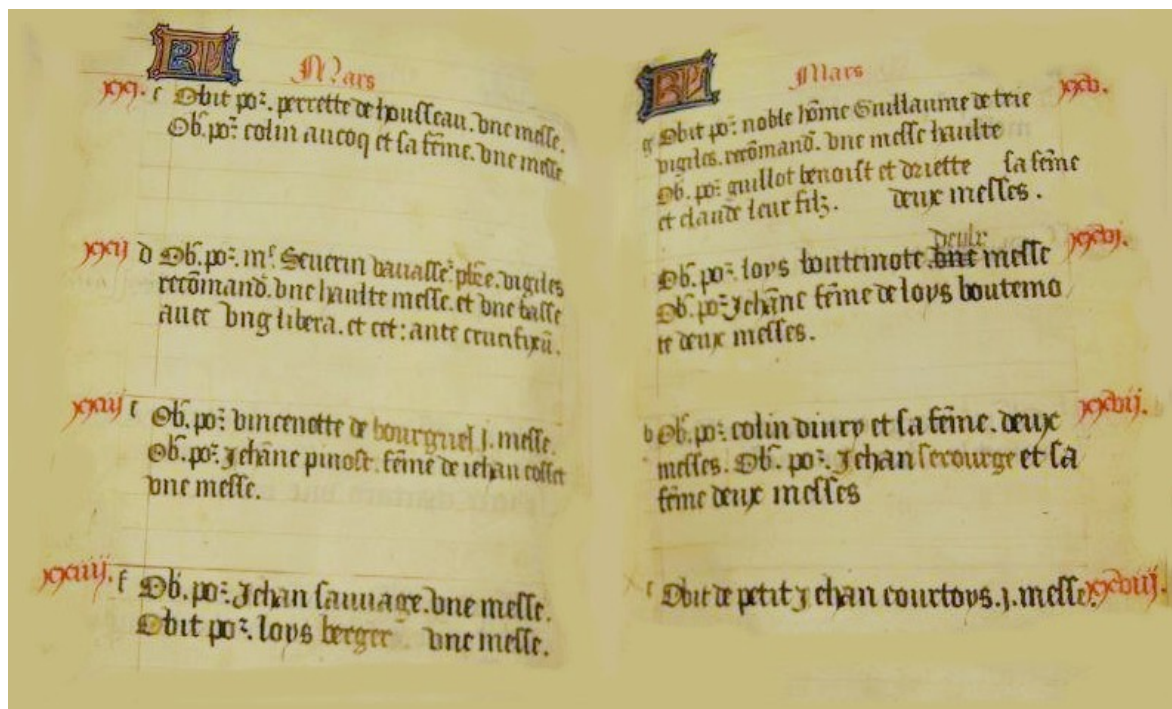 KL Mars
xxi. c Obit poᷣ. perrette de housseau. vne messe.
Ob. poᷣ colin aucoq et sa fēme. vne messe
xxij d Ob. poᷣ. mͬ. Seuerin vauasseᷣ pbr̄e. vigiles
recōmand. vne haulte messe. et vne basse
auec vng libera. et cet : ante crucifixū.
xxiij e Ob. poᷣ vincenette de bourguel j. messe.
Ob. poᷣ. Jehāne pinost. fēme de iehan cosset
vne messe.
xxiiij. f Ob. poᷣ. Jehan sauuage. vne messe.
Obit poᷣ. loys berger vne messe.
KL Mars
g Obit poᷣ noble hōme Guillaume de trie xxv.
vigiles. recōmand. vne messe haulte
Ob. poᷣ guillot benoist et driette sa fēme
et claude leur filz. deux messes.
deulx
Ob. poᷣ. loys boutemote vne messe xxvj.
Ob. poᷣ Jehāne fēme de loys boutemo
te deux messes.
b Ob. poᷣ colin diury et sa fēme. deux xxvij.
messes. Ob. poᷣ. Jehan serourge et sa
fēme deux messes
c Obit de petit Jehan courtoys. j. messe. xxviij.